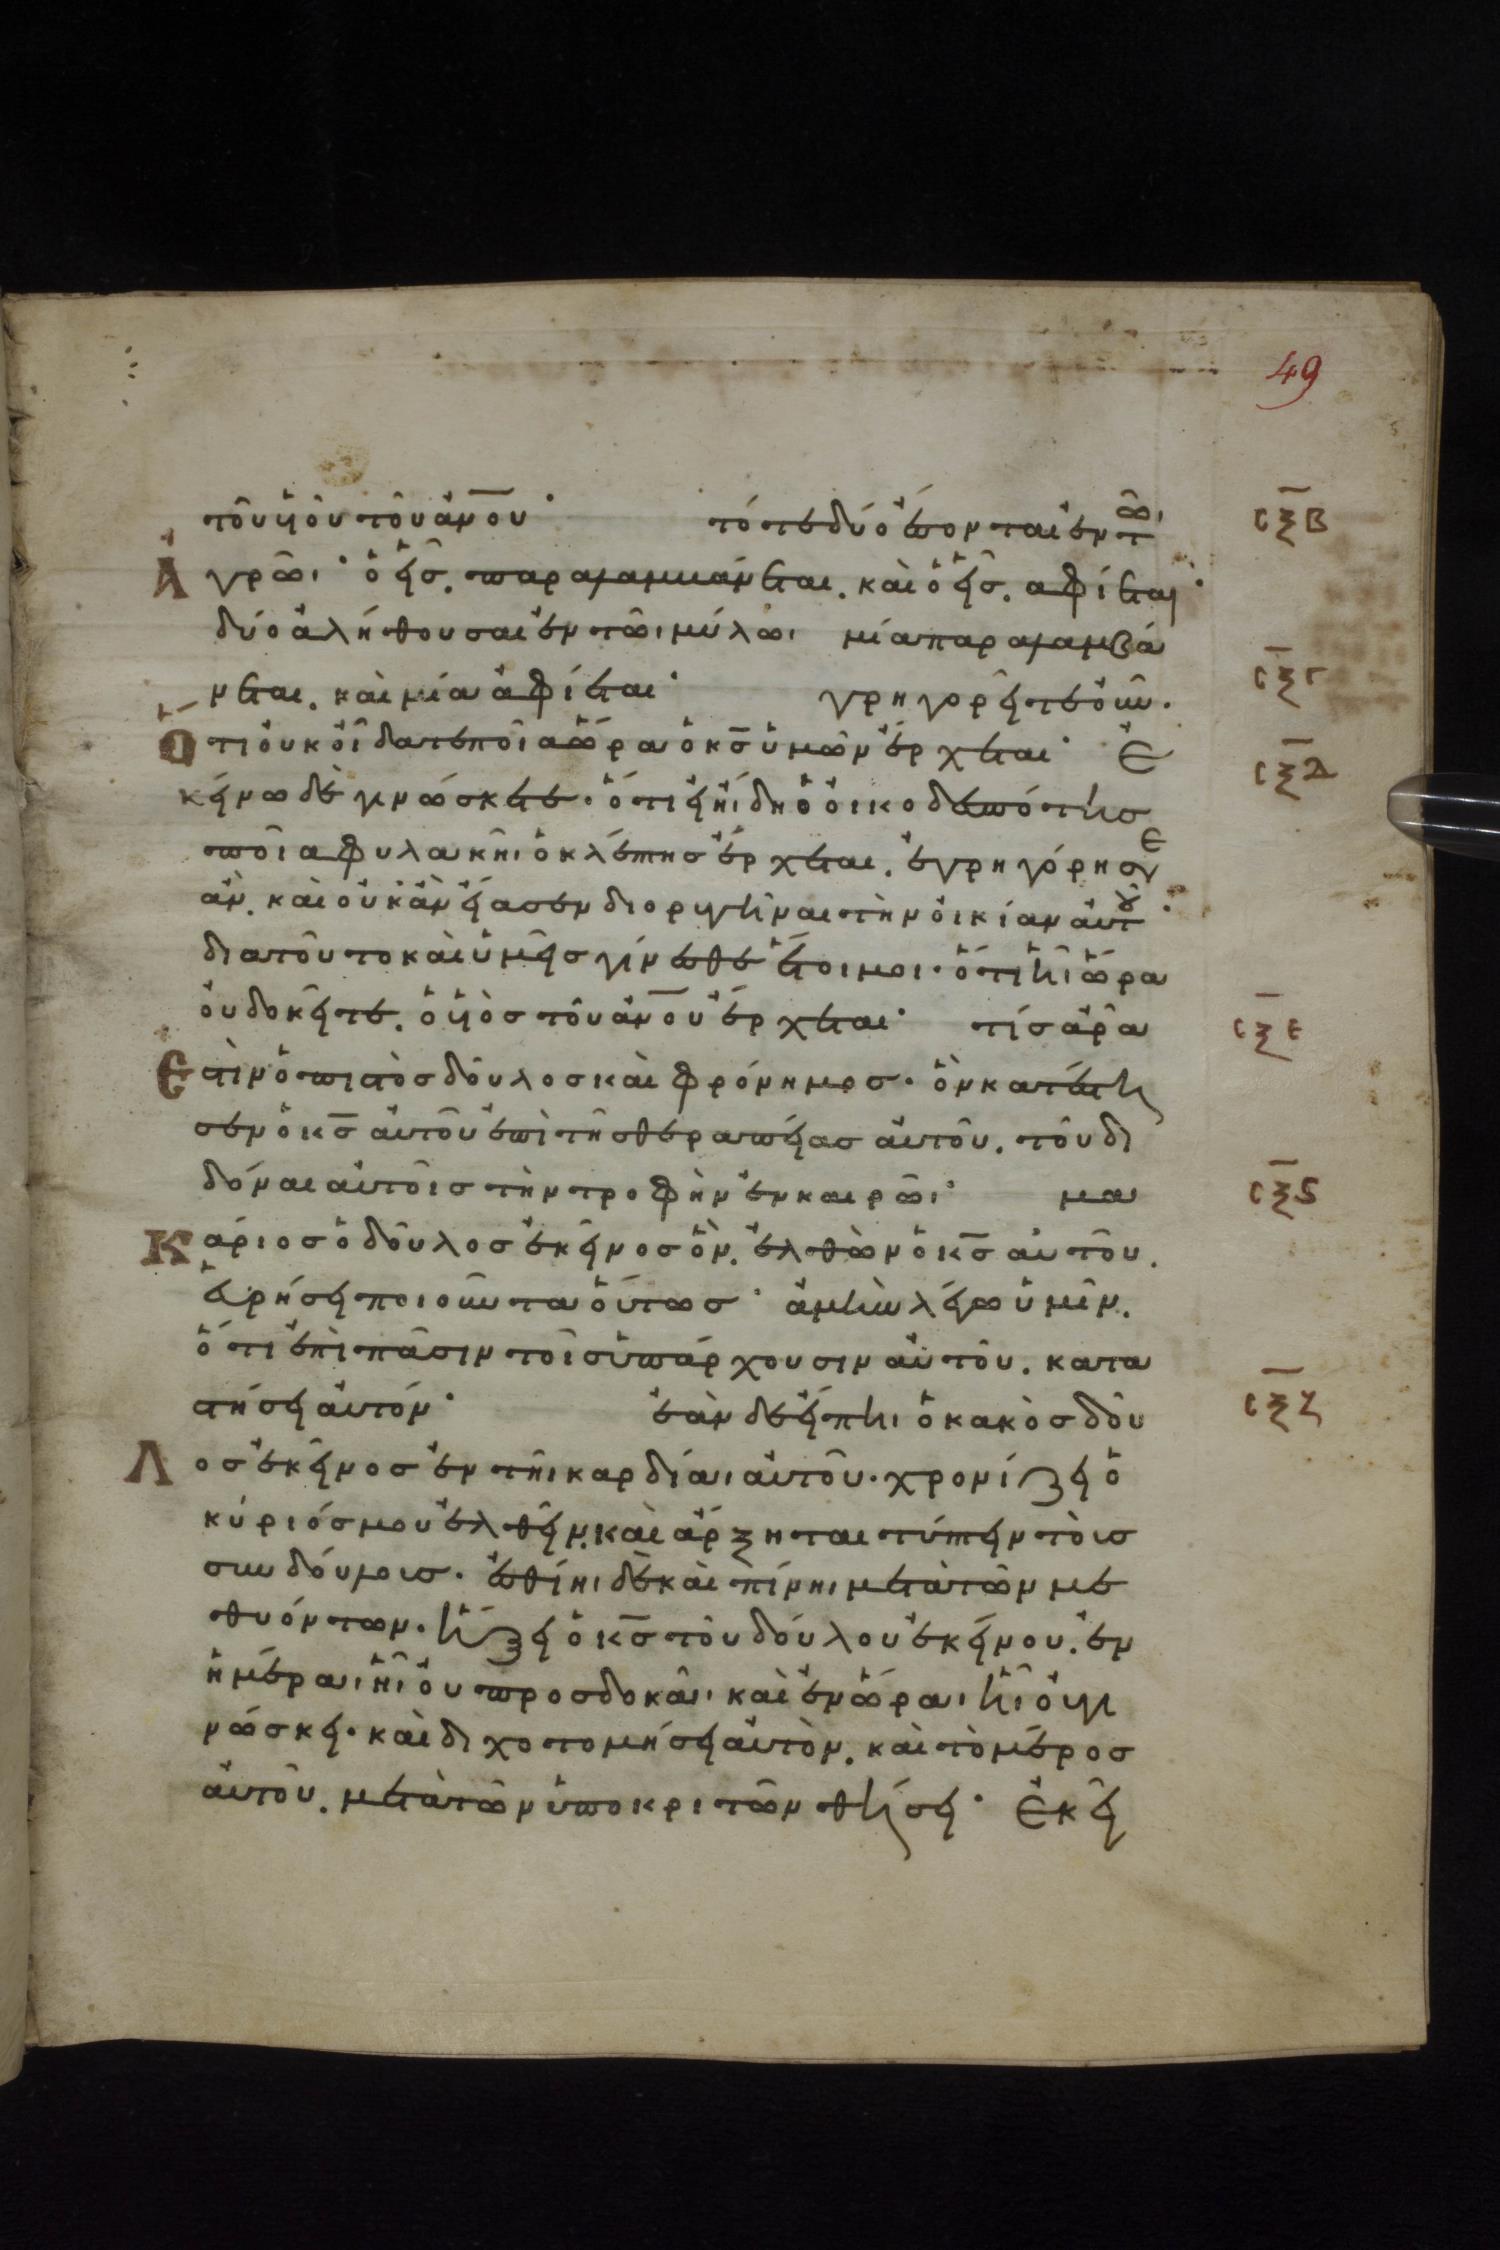 49
τοῦ υἱοῦ τοῦ ἀν̅ου· τότε δύο ἔσονται ἐν τῶι
Ἀγρῶι· ὁ εἷσ. παραλαμβάνεται. καὶ ὁ εἷσ. αφίεται·
δύο ἀλήθουσαι ἐν τῶι μύλωι μία παραλαμβά
νεται. καὶ μία ἀφίεται· γρηγορεῖτε οὖν.
Ὅτι οὐκ οἴδατε ποῖα ὥρα ὁ κ̅σ ὑμῶν ἔρχεται· Ἐ
κείνω δὲ γινώσκετε· ὅτι εἰ ἤιδη ὁ οἰκοδεσπότησ
ποῖα φυλακῆι ὁ κλέπτησ ἔρχεται. ἐγρηγόρησεν
ἀν. καὶ οὐκ ἀν εἴασεν διορυγῆναι τὴν οἰκίαν αὐτοῦ·
διατοῦτο καὶ ὑμεῖσ γίνεσθε ἕτοιμοι· ὅτι ἧι ὥρα
οὐ δοκεῖτε. ὁ υἱὸσ τοῦ ἀν̅ου ἔρχεται· τίσ ἄρα
Ἐστὶν ὁ πιστὸσ δοῦλοσ καὶ φρόνημοσ· ὃν κατέστη
σεν ὁ κ̅σ αὐτοῦ ἐπὶ τῆσ θεραπείασ αὐτοῦ. τοῦ δι
δόναι αὐτοῖσ τὴν τροφὴν ἐν καιρῶι· μα
Κάριοσ ὁ δοῦλοσ ἐκεῖνοσ ὃν. ἐλθὼν ὁ κ̅σ αὐτοῦ.
εὑρήσει ποιοῦντα οὕτωσ· ἀμὴν λέγω ὑμῖν.
ὅτι ἐπὶ πᾶσιν τοῖσ ὑπάρχουσιν αὐτοῦ. κατα
στήσει αὐτόν· ἐὰν δὲ εἴπηι ὁ κακὸσ δοῦ
Λοσ ἐκεῖνοσ ἐν τῆι καρδίαι αὐτοῦ· χρονίζει ὁ
κύριόσ μου ἐλθεῖν. καὶ ἄρξηται τύπτειν τοὺσ
συνδούλουσ· ἐσθίηι δὲ καὶ πίνηι μετὰ τῶν με
θυόντων· ἥξει ὁ κ̅σ τοῦ δούλου ἐκείνου. ἐν
ἡμέραι ἧι οὐ προσδοκᾶι καὶ ἐν ὥραι ἧι οὐ γι
νώσκει· καὶ διχοτομήσει αὐτὸν. καὶ τὸ μέροσ
αὐτοῦ. μετὰ τῶν ὑποκριτῶν θήσει· Ἐκεῖ
σ̅ξ̅β
σ̅ξ̅γ
σ̅ξ̅δ
σ̅ξ̅ε
σ̅ξ̅ϛ
σ̅ξ̅ζ